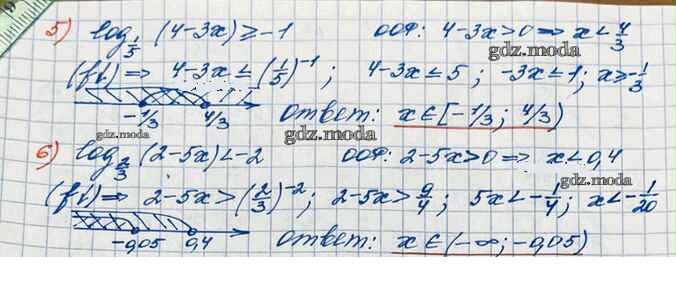 5) log₁/₅ (4-3x) ≥ -1   ООФ: 4-3x>0 => x < 4/3
gdz.moda
(f↓) => 4-3x ≤ (1/5)⁻¹; 4-3x ≤ 5; -3x ≤ 1; x ≥ -1/3
gdz.moda
-1/3 4/3 Ответ: x ∈ [-1/3; 4/3)
gdz.moda
6) log₂/₃ (2-5x) < -2   ООФ: 2-5x>0 => x < 0,4
gdz.moda
(f↓) => 2-5x > (2/3)⁻²; 2-5x > 9/4; 5x < -1/4; x < -1/20
-0,05 0,4 Ответ: x ∈ (-∞; -0,05)
gdz.moda